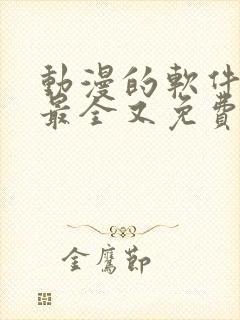 動漫的軟件
最全又免費
金鷹節